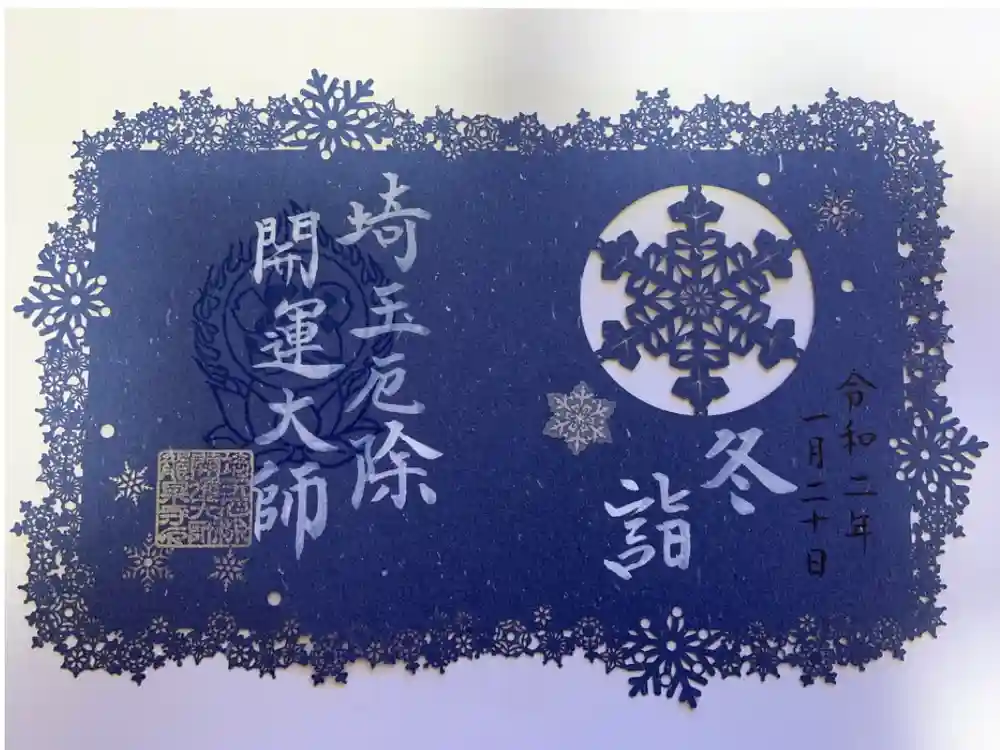 令和二年
一月二十日
冬
詣
埼玉厄除
開運大師